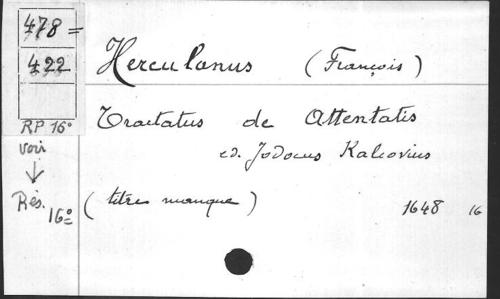 478 =
422
RP 16°
voir
↓
Rés. 16°
Herculanus (François)
Tractatus de Attentatis
ed. Jodocus Kalcovius
(titre manque) 1648 16